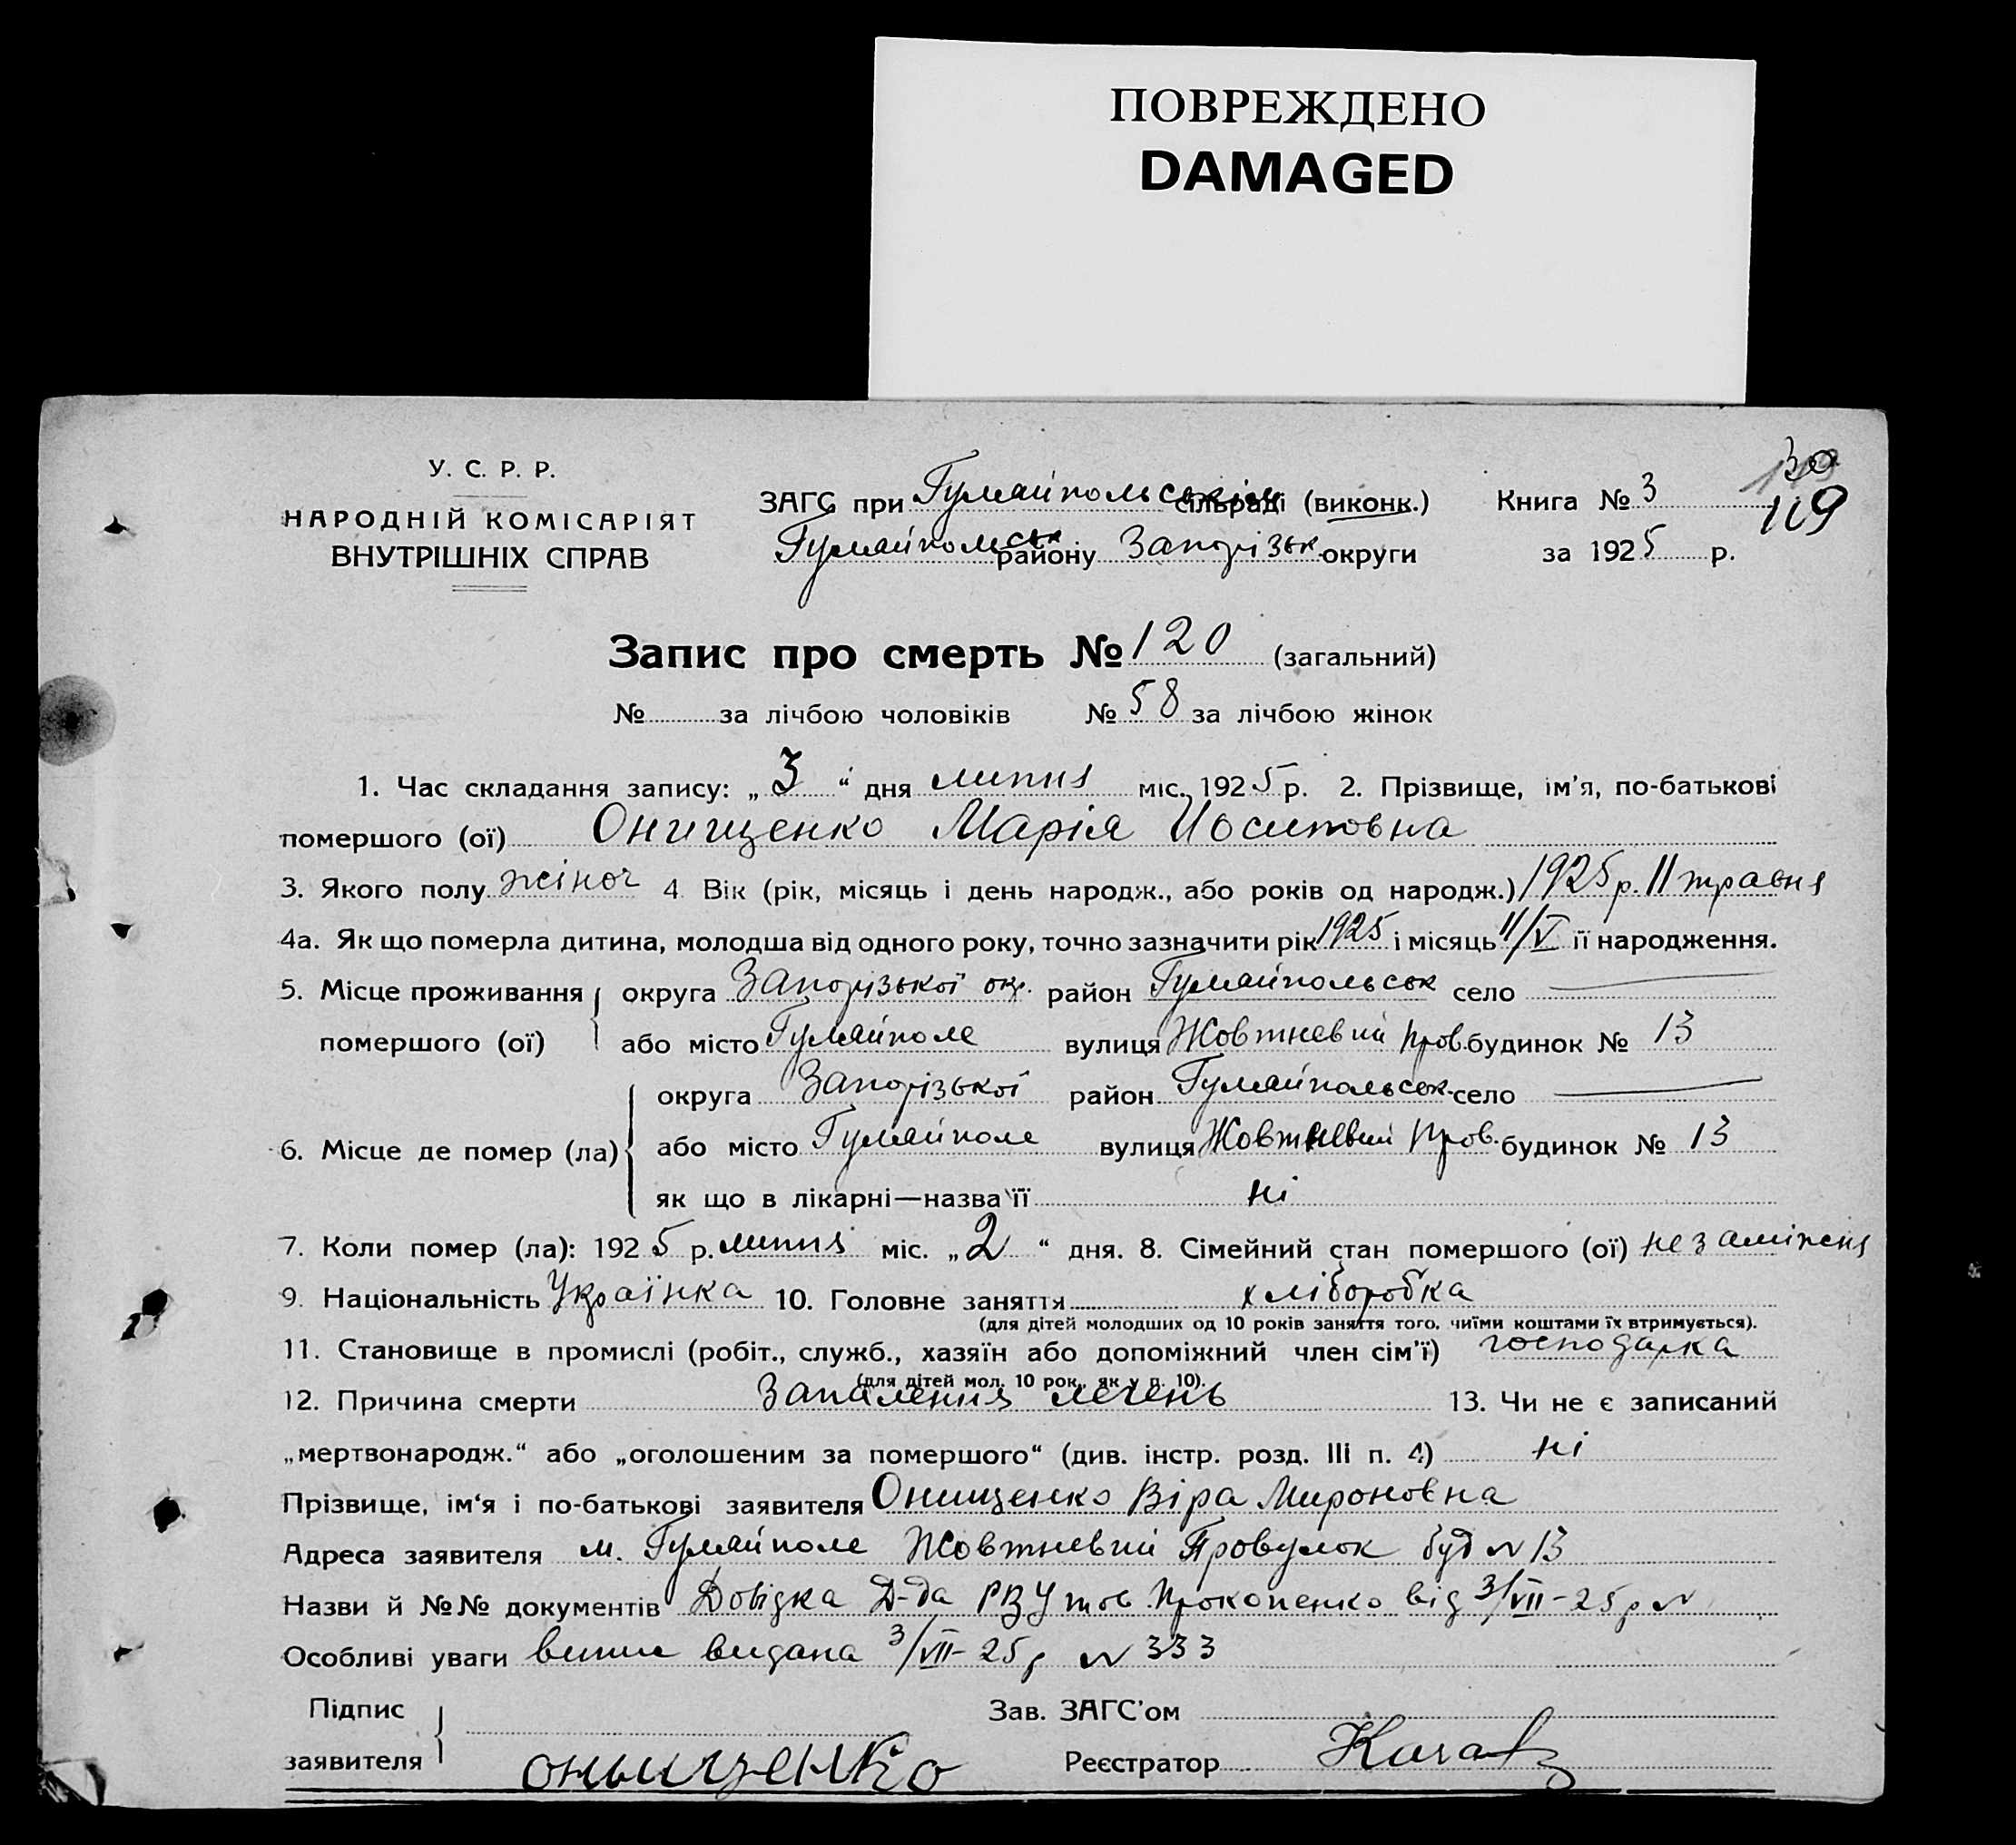 ПОВРЕЖДЕНО
DAMAGED
30
119
У. С. Р. Р.
НАРОДНІЙ КОМІСАРІЯТ
ВНУТРІШНІХ СПРАВ
ЗАГС при Гуляйпольськім сільраді (виконк.) Книга № 3
Гуляйпольськ району Запорізьк. округи за 1925 р.
Запис про смерть № 120 (загальний)
№ за лічбою чоловіків № 58 за лічбою жінок
1. Час складання запису: „ 3 “ дня липня міс. 1925 р. 2. Прізвище, ім'я, по-батькові
помершого (ої) Онищенко Марія Йосиповна
3. Якого полу жіноч 4 Вік (рік, місяць і день народж., або років од народж.) 1925 р. 11 травня
4а. Як що померла дитина, молодша від одного року, точно зазначити рік 1925 і місяць 11/V її народження.
5. Місце проживання округа Запорізької окр. район Гуляйпольськ село
помершого (ої) або місто Гуляйполе вулиця Жовтневий пров. будинок № 13
округа Запорізької район Гуляйпольськ. село
6. Місце де помер (ла) або місто Гуляйполе вулиця Жовтневий пров. будинок № 13
як що в лікарні—назва її ні
7. Коли помер (ла): 1925 р. липня міс. „ 2 “ дня. 8. Сімейний стан помершого (ої) незаміжня
9. Національність Українка 10. Головне заняття хліборобка
(для дітей молодших од 10 років заняття того, чиїми коштами їх втримується).
11. Становище в промислі (робіт., служб., хазяїн або допоміжний член сім'ї) господарка
(для дітей мол. 10 рок., як у п. 10).
12. Причина смерти Запалення легень 13. Чи не є записаний
„мертвонародж.“ або „оголошеним за помершого“ (див. інстр. розд. III п. 4) ні
Прізвище, ім'я і по-батькові заявителя Онищенко Віра Мироновна
Адреса заявителя м. Гуляйполе Жовтневий Провулок буд № 13
Назви й №№ документів Довідка Д-да РВУ тов. Прокопенко від 3/VII-25р №
Особливі уваги випис видана 3/VII-25р № 333
Підпис
заявителя оныщенко
Зав. ЗАГС'ом
Реєстратор